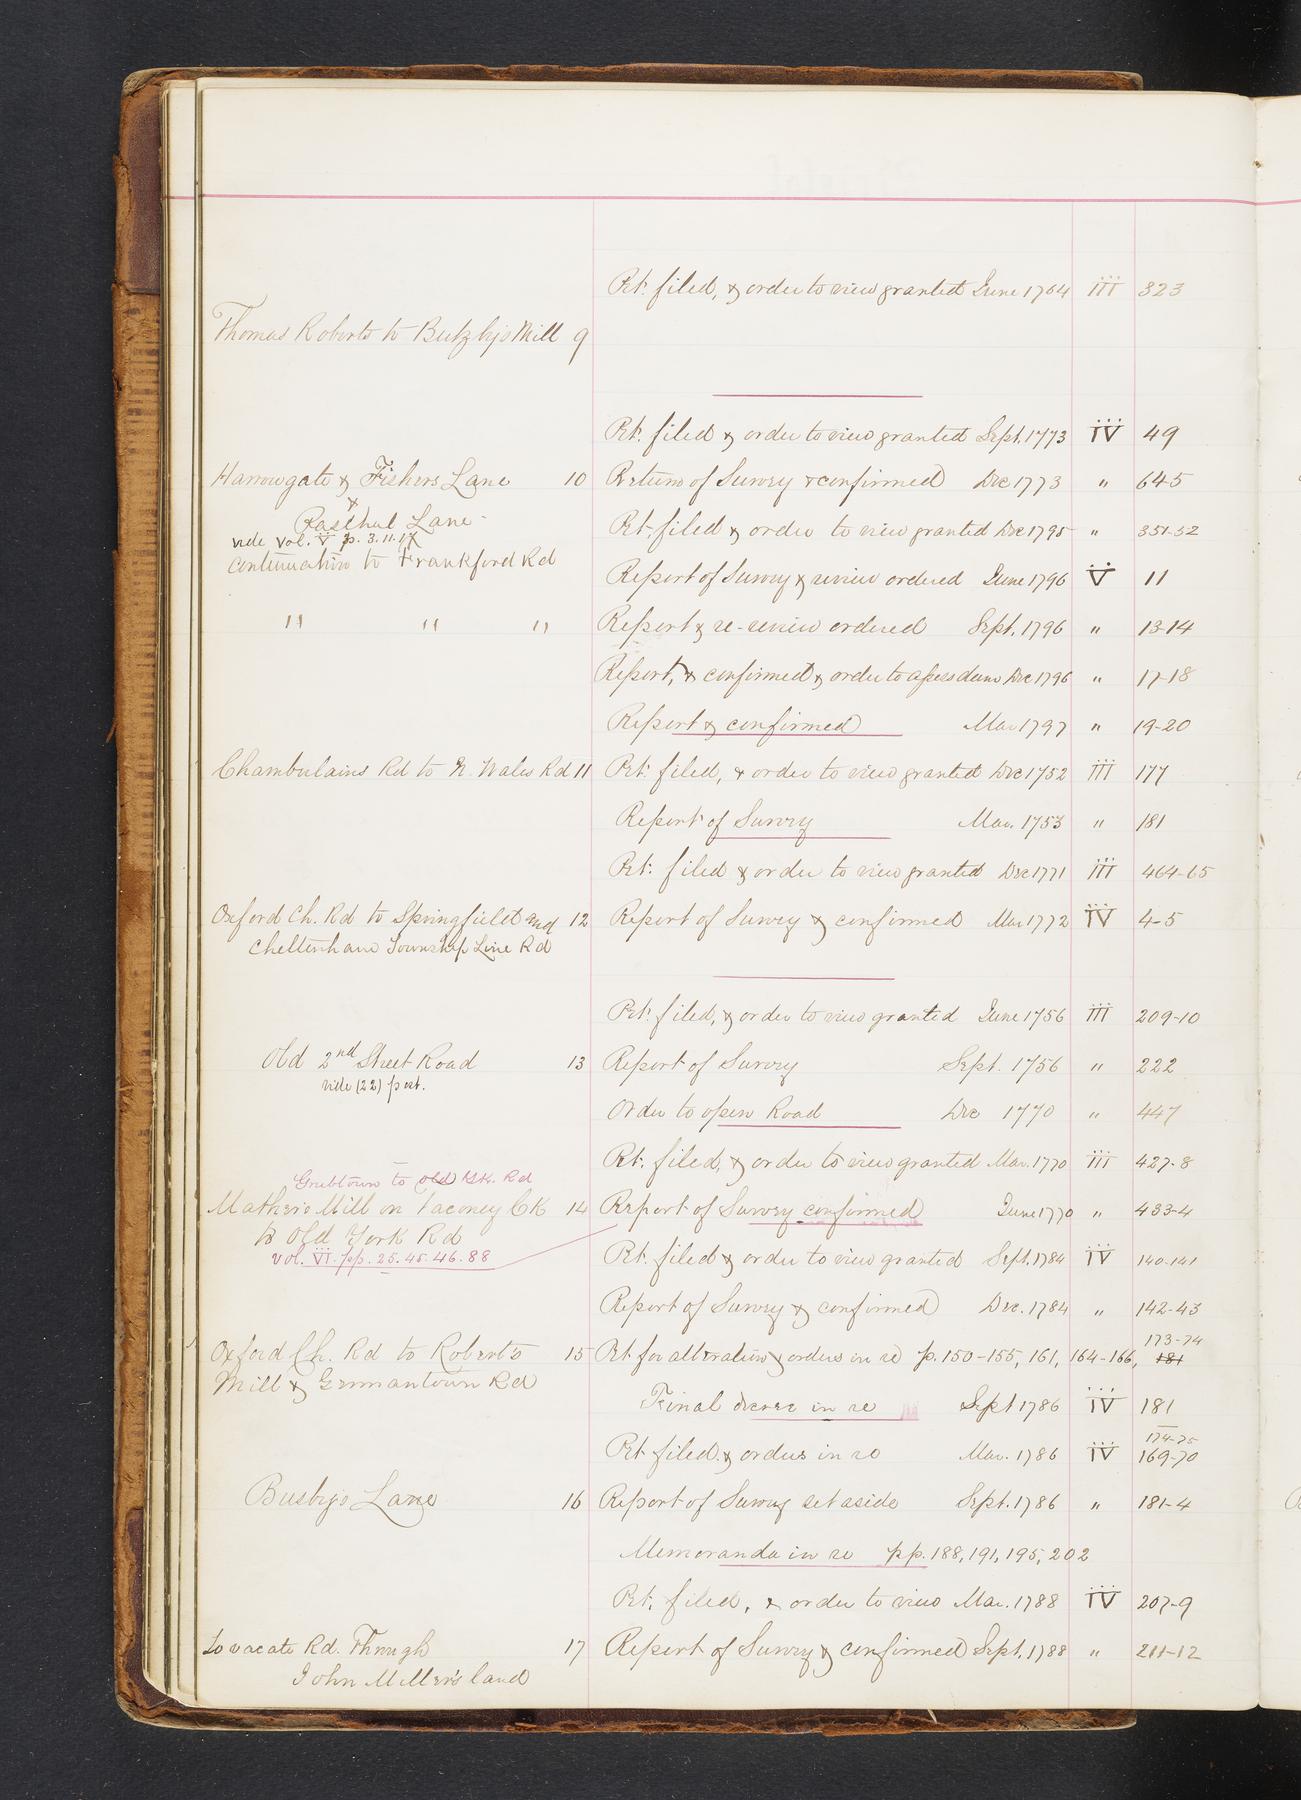 Pet. filed, & order to view granted June 1764 III 323
Thomas Roberts to Butz bys Mill 9
Pet. filed & order to view granted Sept. 1773 IV 49
Harrowgate & Fishers Lane 10 Return of Survey & confirmed Dec 1773 " 64-5
&
Rasthul Lane
vide vol. V p. 3. 11. 17
Pet. filed & order to view granted Dec 1795 " 351-52
continuation to Frankford Rd
Report of Survey & review ordered June 1796 V 11
" " " Report & re-review ordered Sept. 1796 " 13-14
Report, & confirmed & order to assess dam Dec 1796 " 17-18
Report & confirmed Mar 1797 " 19-20
Chamberlains Rd to N. Wales Rd 11 Pet. filed, & order to view granted Dec 1752 III 177
Report of Survey Mar. 1753 " 181
Pet. filed & order to view granted Dec 1771 III 464-65
Oxford Ch. Rd to Springfield and 12 Report of Survey & confirmed Mar 1772 IV 4-5
Cheltenham Township Line Rd
Pet. filed, & order to view granted June 1756 III 209-10
Old 2nd Street Road 13 Report of Survey Sept. 1756 " 222
vide (22) post.
Order to open Road Dec 1770 " 447
Pet. filed, & order to view granted Mar. 1770 III 427-8
Grubtown to Old Yk. Rd
Mather's Mill on Taconey Ck 14 Report of Survey confirmed June 1770 " 433-4
to Old York Rd
vol. VI. pp. 25. 45. 46. 88
Pet. filed & order to view granted Sept. 1784 IV 140-141
Report of Survey & confirmed Dec. 1784 " 142-43
173-74
Oxford Ch. Rd to Robert's 15 Pet for alteration & orders in re p. 150-155, 161, 164-166, 181
Mill & Germantown Rd
Final decree in re Sept 1786 IV 181
174-75
Pet filed & orders in re Mar. 1786 IV 169-70
Busby's Lane 16 Report of Survey set aside Sept. 1786 " 181-4
Memoranda in re pp. 188, 191, 195, 202
Pet. filed, & order to view Mar. 1788 IV 207-9
to vacate Rd. Through 17 Report of Survey & confirmed Sept. 1788 " 211-12
John Miller's land